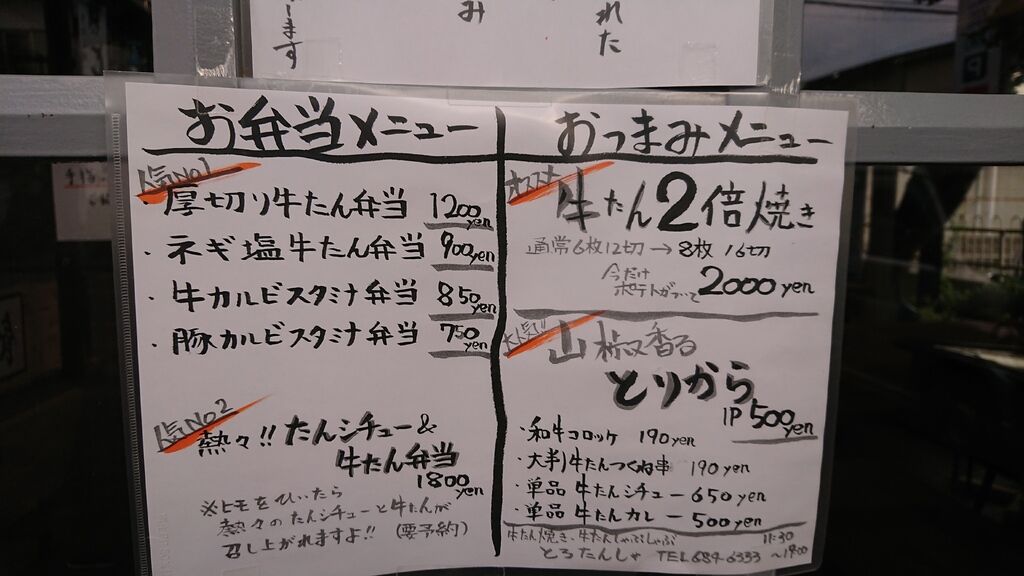 れた
み
します
お弁当メニュー
人気No1
厚切り牛たん弁当 1200yen
・ネギ塩牛たん弁当 900yen
・牛カルビスタミナ弁当 850yen
・豚カルビスタミナ弁当 750yen
人気No2
熱々!!たんシチュー&
牛たん弁当
1800yen
※ヒモをひいたら
熱々のたんシチューと牛たんが
召し上がれますよ!!(要予約)
おつまみメニュー
オススメ
牛たん2倍焼き
通常6枚12切→8枚16切
今だけ
ポテトがついて 2000yen
大人気!!
山椒香る
とりから
1P 500yen
・和牛コロッケ 190yen
・大判牛たんつくね串 190yen
・単品牛たんシチュー 650yen
・単品牛たんカレー 500yen
牛たん焼き、牛たんしゃぶしゃぶ 11:30
とろたんしゃ TEL684-6333 〜19:00
P